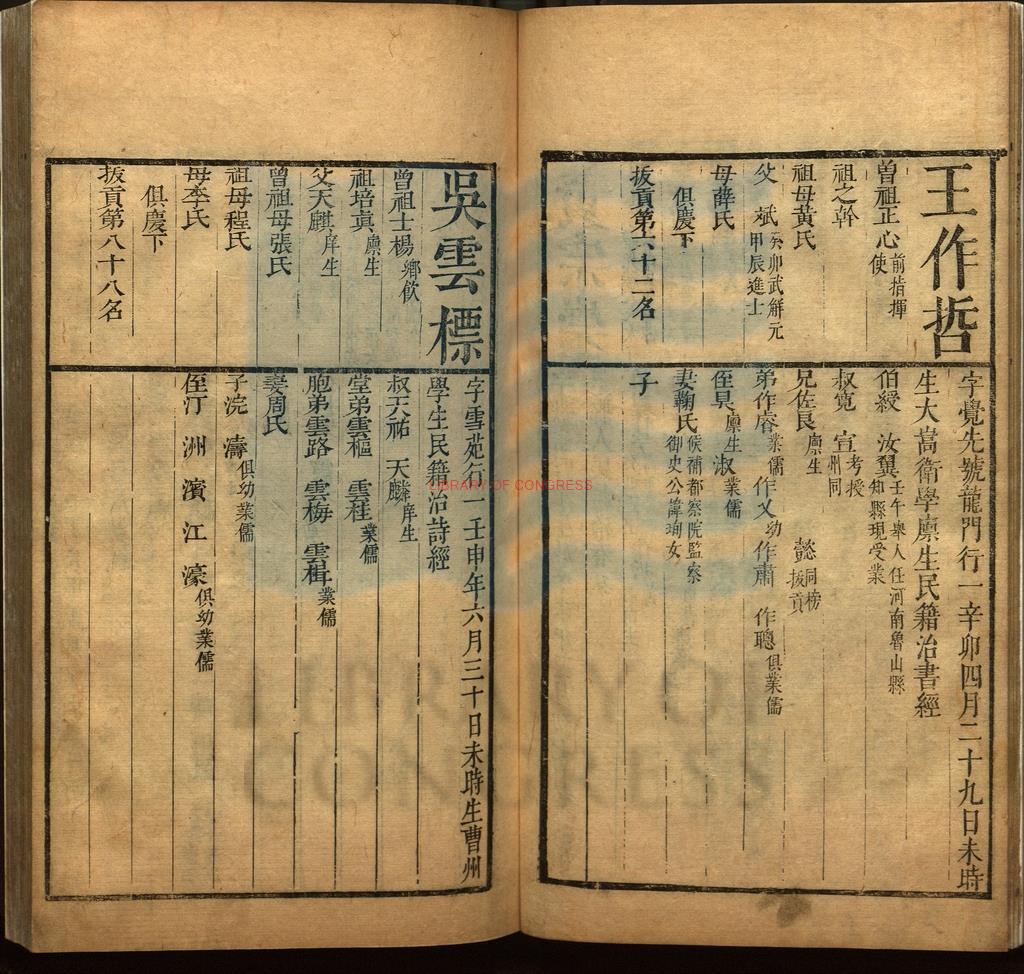 王作哲
曾祖正心前指揮使
祖之幹
祖母黃氏
父斌癸卯武解元甲辰進士
母薛氏
俱慶下
拔貢第六十二名
字覺先號龍門行一辛卯四月二十九日未時
生大嵩衛學廩生民籍治書經
伯綬 汝翼壬午舉人任河南魯山縣知縣現受業
叔寬 宣考授州同
兄佐良廩生 懿同榜拔貢
弟作睿業儒 作乂幼 作肅 作聰俱業儒
侄昊廩生 淑業儒
妻鞠氏候補都察院監察御史公諱珣女
子
吳雲標
曾祖士楊鄉飲
祖培真廩生
父天麒庠生
曾祖母張氏
祖母程氏
母李氏
俱慶下
拔貢第八十八名
字雪苑行一壬申年六月三十日未時生曹州
學生民籍治詩經
叔天祐 天麟庠生
堂弟雲樞 雲桂業儒
胞弟雲路 雲梅 雲楫業儒
妻周氏
子浣 濤俱幼業儒
侄汀 洲 濱 江 濠俱幼業儒
LIBRARY OF CONGRESS